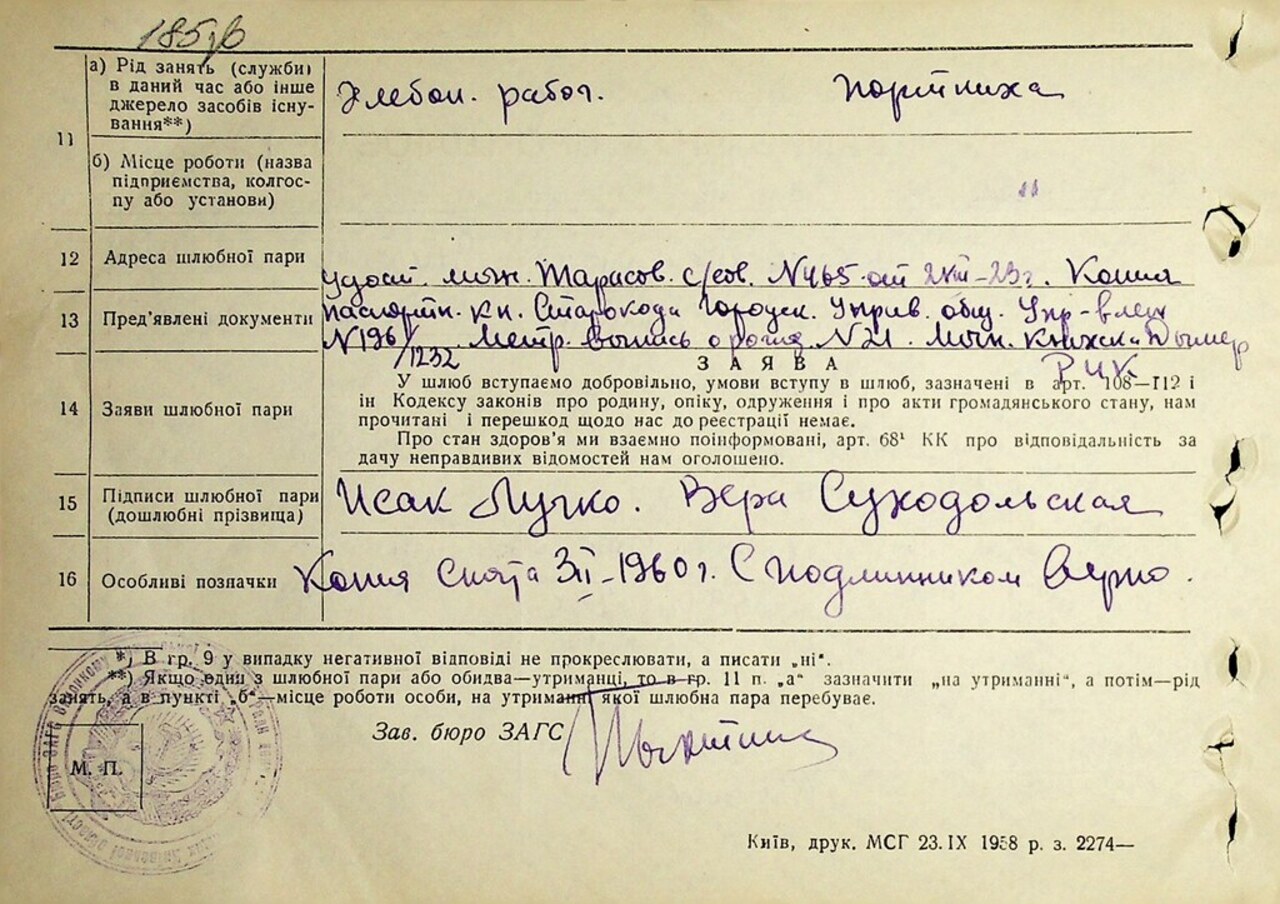 185
11 а) Рід занять (служби) в даний час або інше джерело засобів існування**) Хлебоп. работ. Портниха
б) Місце роботи (назва підприємства, колгоспу або установи) "
12 Адреса шлюбної пари
удост. личн. Тарасов. с/сов. N465 от 2 VIII-23 г. Копия
13 Пред'явлені документи паспортн. кн. Старокода Городск. Управ. общ. Упр-влен
N196/1232 Метр. выпись о рожд. N21. Личн. Книжск Дымер
РИК
З А Я В А
14 Заяви шлюбної пари
У шлюб вступаємо добровільно, умови вступу в шлюб, зазначені в арт. 108—112 і
ін Кодексу законів про родину, опіку, одруження і про акти громадянського стану, нам
прочитані і перешкод щодо нас до реєстрації немає.
Про стан здоров'я ми взаємно поінформовані, арт. 68¹ КК про відповідальність за
дачу неправдивих відомостей нам оголошено.
15 Підписи шлюбної пари (дошлюбні прізвища) Исак Лучко. Вера Суходольская
16 Особливі позначки Копия Снята 3/II-1960 г. С подлинником верно.
*) В гр. 9 у випадку негативної відповіді не прокреслювати, а писати „ні".
**) Якщо один з шлюбної пари або обидва—утриманці, то в гр. 11 п. „а" зазначити „на утриманні", а потім—рід
занять, а в пункті „б"—місце роботи особи, на утриманні якої шлюбна пара перебуває.
Зав. бюро ЗАГС
М. П.
Київ, друк. МСГ 23.IX 1958 р. з. 2274—